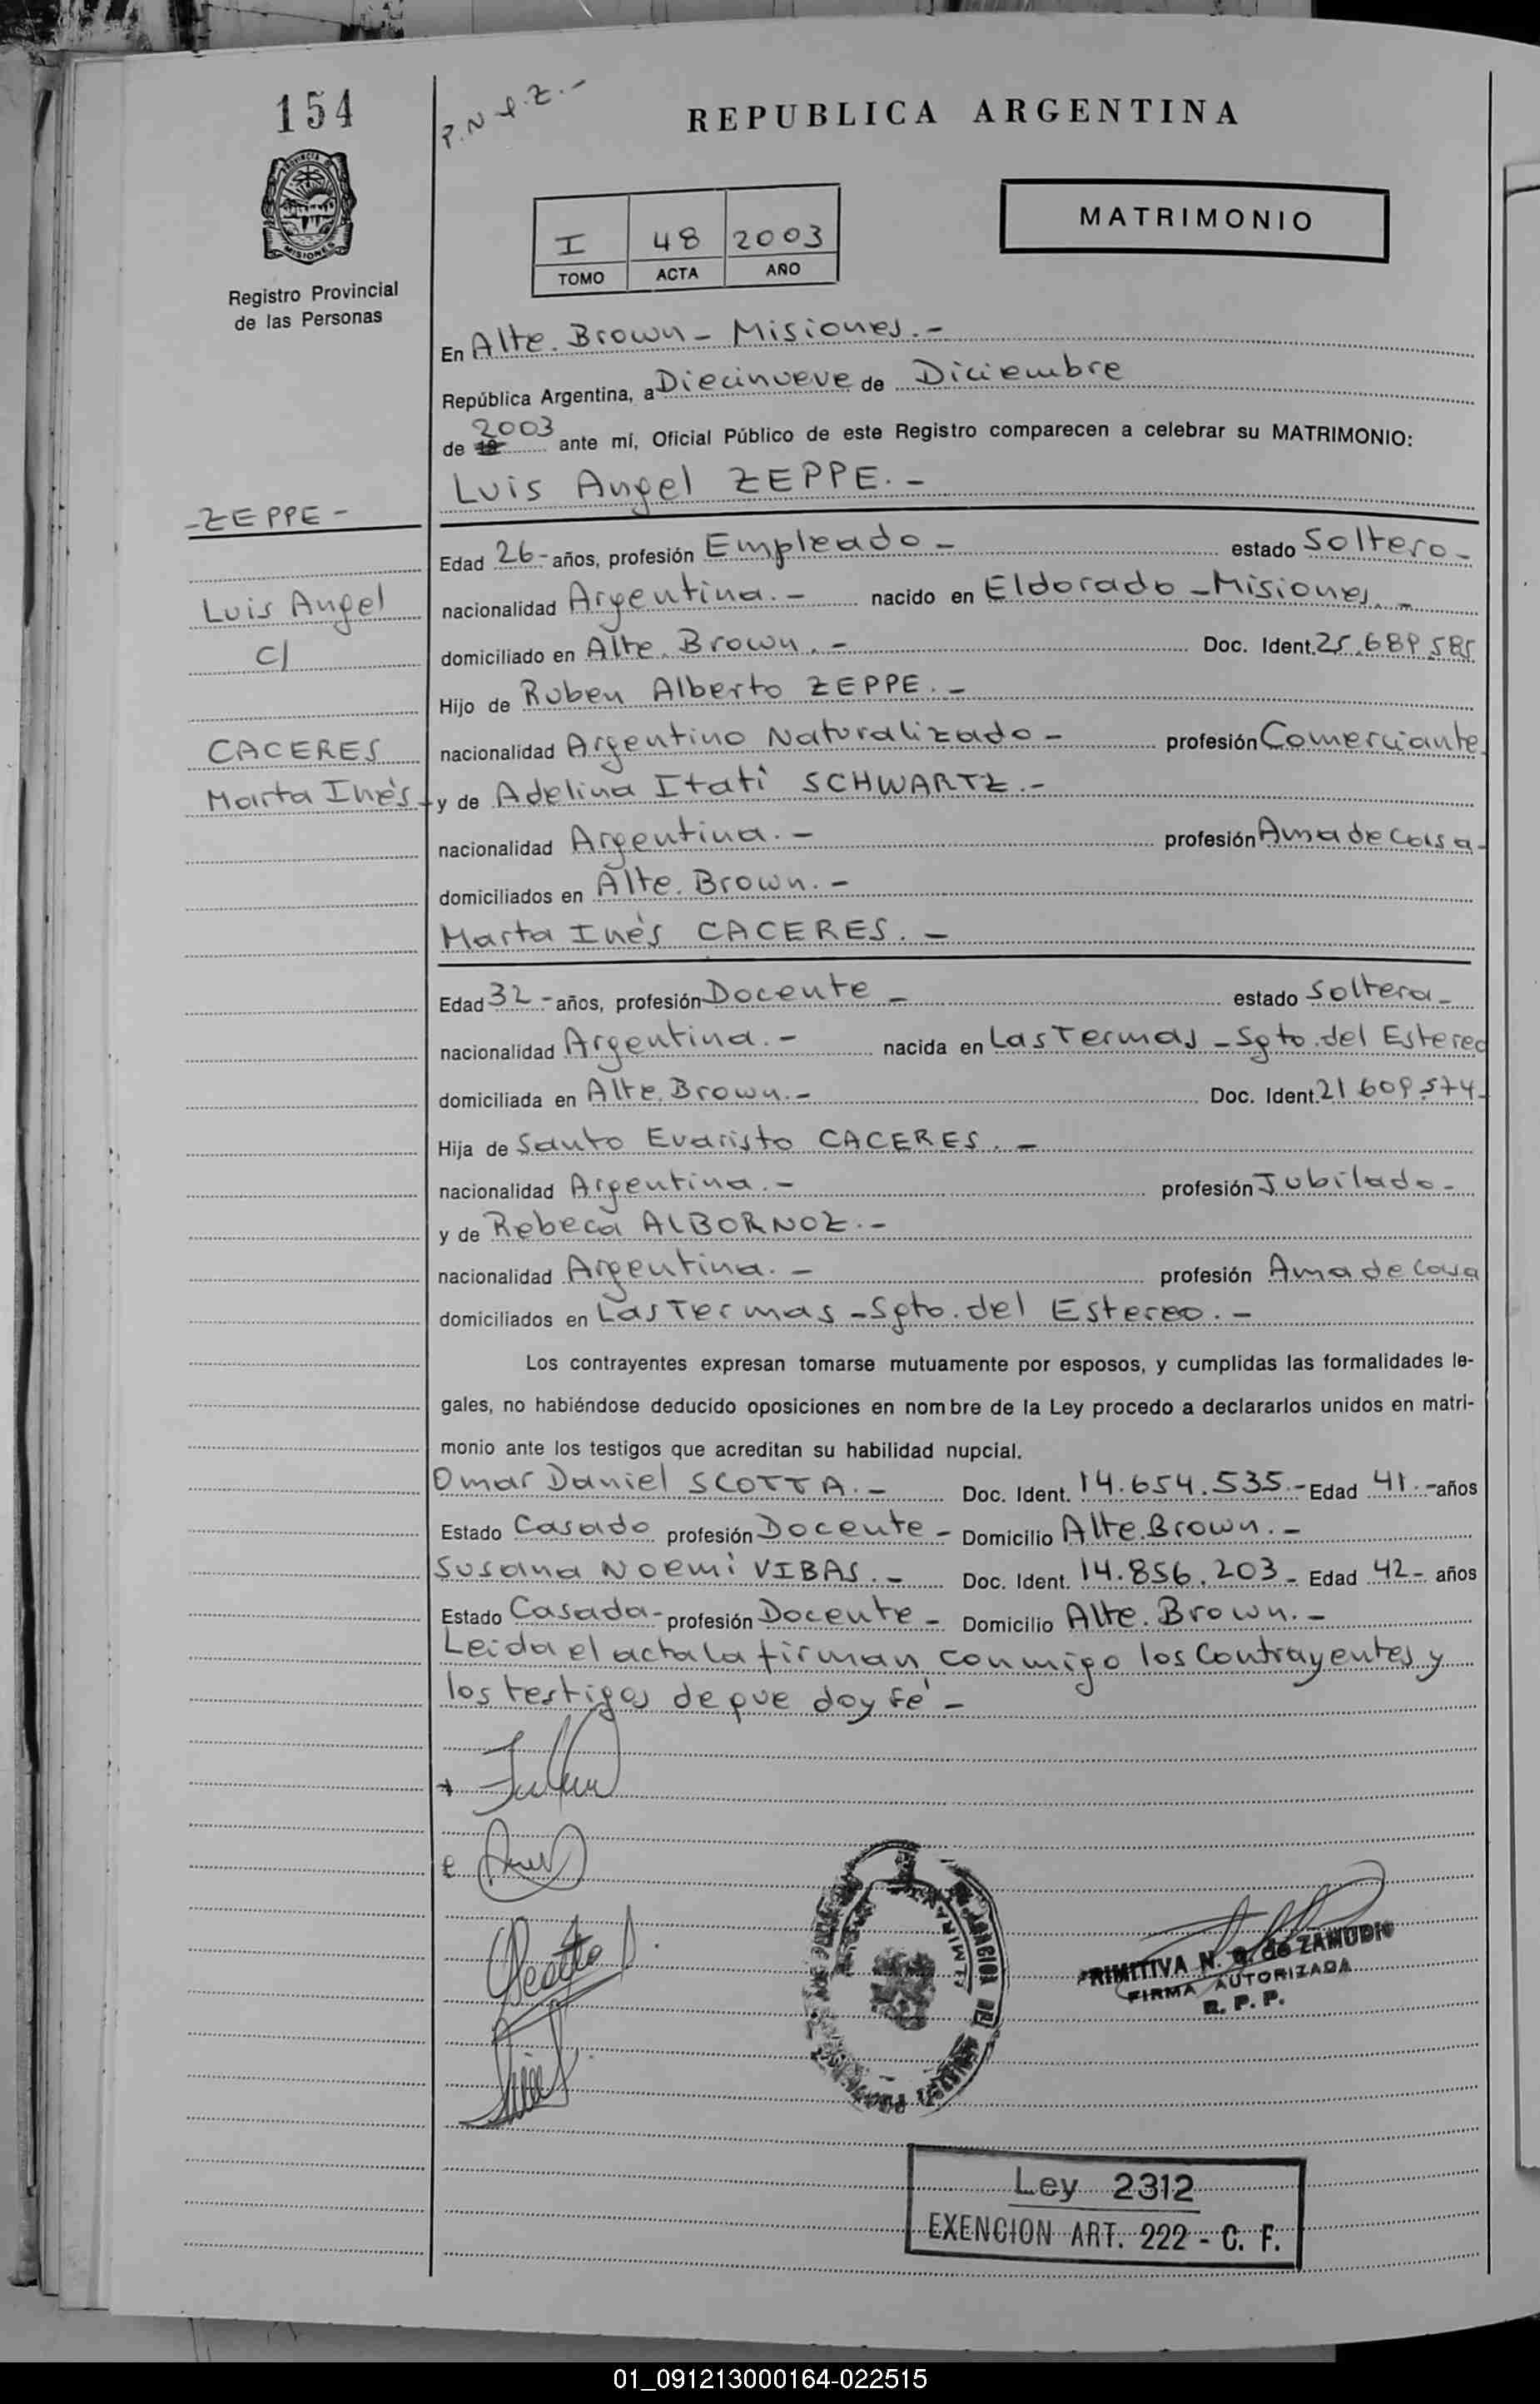 154
P.N.I.Z.-
REPUBLICA ARGENTINA
PROVINCIA DE
MISIONES
Registro Provincial
de las Personas
I 48 2003
TOMO ACTA AÑO
MATRIMONIO
En Alte. Brown - Misiones.-
República Argentina, a Diecinueve de Diciembre
de 19 2003 ante mí, Oficial Público de este Registro comparecen a celebrar su MATRIMONIO:
Luis Angel ZEPPE.-
-ZEPPE-
Edad 26- años, profesión Empleado - estado Soltero-
Luis Angel
nacionalidad Argentina.- nacido en Eldorado - Misiones.-
C/
domiciliado en Alte. Brown.- Doc. Ident. 25.689.585
Hijo de Ruben Alberto ZEPPE.-
CACERES
nacionalidad Argentino Naturalizado - profesión Comerciante
Marta Inés-
y de Adelina Itatí SCHWARTZ.-
nacionalidad Argentina.- profesión Ama de Casa-
domiciliados en Alte. Brown.-
Marta Inés CACERES.-
Edad 32- años, profesión Docente - estado Soltera-
nacionalidad Argentina.- nacida en Las Termas - Sgto. del Estereo
domiciliada en Alte. Brown.- Doc. Ident. 21.609.574-
Hija de Santo Evaristo CACERES.-
nacionalidad Argentina.- profesión Jubilado-
y de Rebeca ALBORNOZ.-
nacionalidad Argentina.- profesión Ama de Casa
domiciliados en Las Termas - Sgto. del Estereo.-
Los contrayentes expresan tomarse mutuamente por esposos, y cumplidas las formalidades le-
gales, no habiéndose deducido oposiciones en nombre de la Ley procedo a declararlos unidos en matri-
monio ante los testigos que acreditan su habilidad nupcial.
Omar Daniel SCOTTA.- Doc. Ident. 14.654.535.- Edad 41.- años
Estado Casado profesión Docente - Domicilio Alte. Brown.-
Susana Noemí VIBAS.- Doc. Ident. 14.856.203- Edad 42- años
Estado Casada- profesión Docente - Domicilio Alte. Brown.-
Leida el acta la firman conmigo los Contrayentes y
los testigos de que doy fé-
PRIMITIVA N. G. de ZAMUDIO
FIRMA AUTORIZADA
R. P. P.
Ley 2312
EXENCION ART. 222 - C. F.
01_091213000164-022515